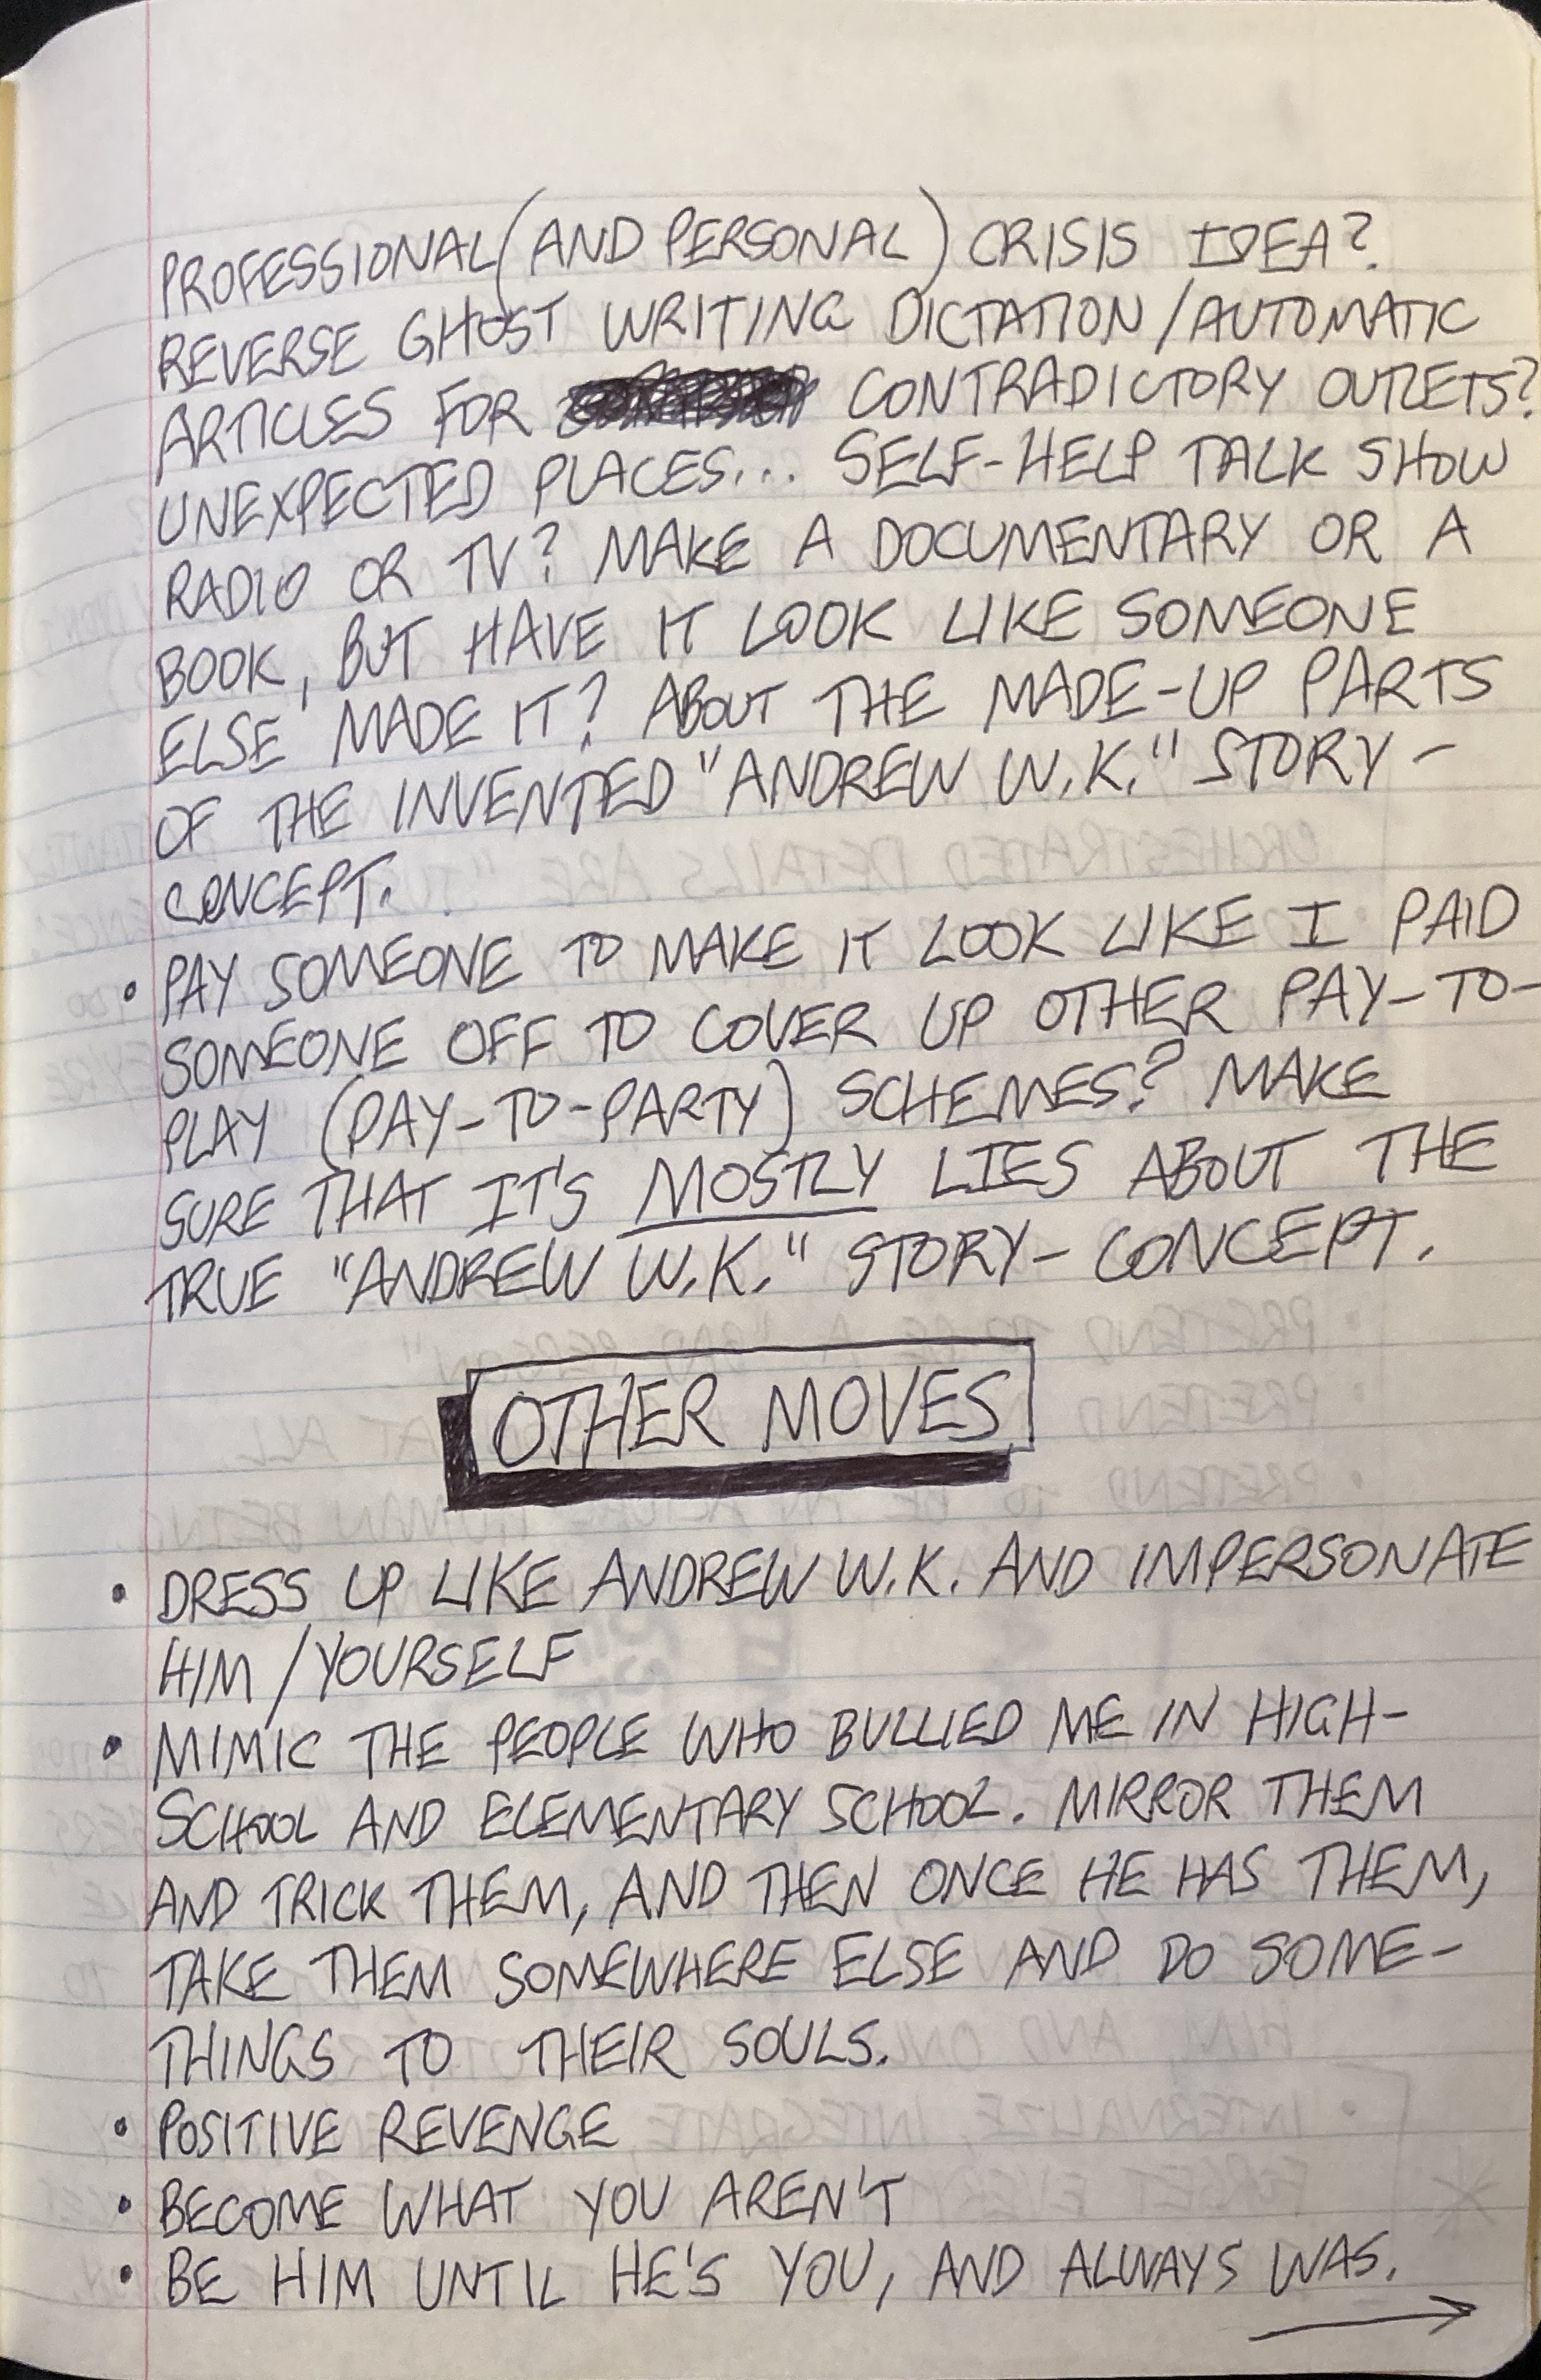 PROFESSIONAL (AND PERSONAL) CRISIS IDEA?
REVERSE GHOST WRITING DICTATION/AUTOMATIC
ARTICLES FOR CONTRADICTORY OUTLETS?
UNEXPECTED PLACES... SELF-HELP TALK SHOW
RADIO OR TV? MAKE A DOCUMENTARY OR A
BOOK, BUT HAVE IT LOOK LIKE SOMEONE
ELSE MADE IT? ABOUT THE MADE-UP PARTS
OF THE INVENTED "ANDREW W.K." STORY-
CONCEPT.
• PAY SOMEONE TO MAKE IT LOOK LIKE I PAID
SOMEONE OFF TO COVER UP OTHER PAY-TO-
PLAY (PAY-TO-PARTY) SCHEMES? MAKE
SURE THAT IT'S MOSTLY LIES ABOUT THE
TRUE "ANDREW W.K." STORY-CONCEPT.
OTHER MOVES
• DRESS UP LIKE ANDREW W.K. AND IMPERSONATE
HIM/YOURSELF
• MIMIC THE PEOPLE WHO BULLIED ME IN HIGH-
SCHOOL AND ELEMENTARY SCHOOL. MIRROR THEM
AND TRICK THEM, AND THEN ONCE HE HAS THEM,
TAKE THEM SOMEWHERE ELSE AND DO SOME-
THINGS TO THEIR SOULS.
• POSITIVE REVENGE
• BECOME WHAT YOU AREN'T
• BE HIM UNTIL HE'S YOU, AND ALWAYS WAS.